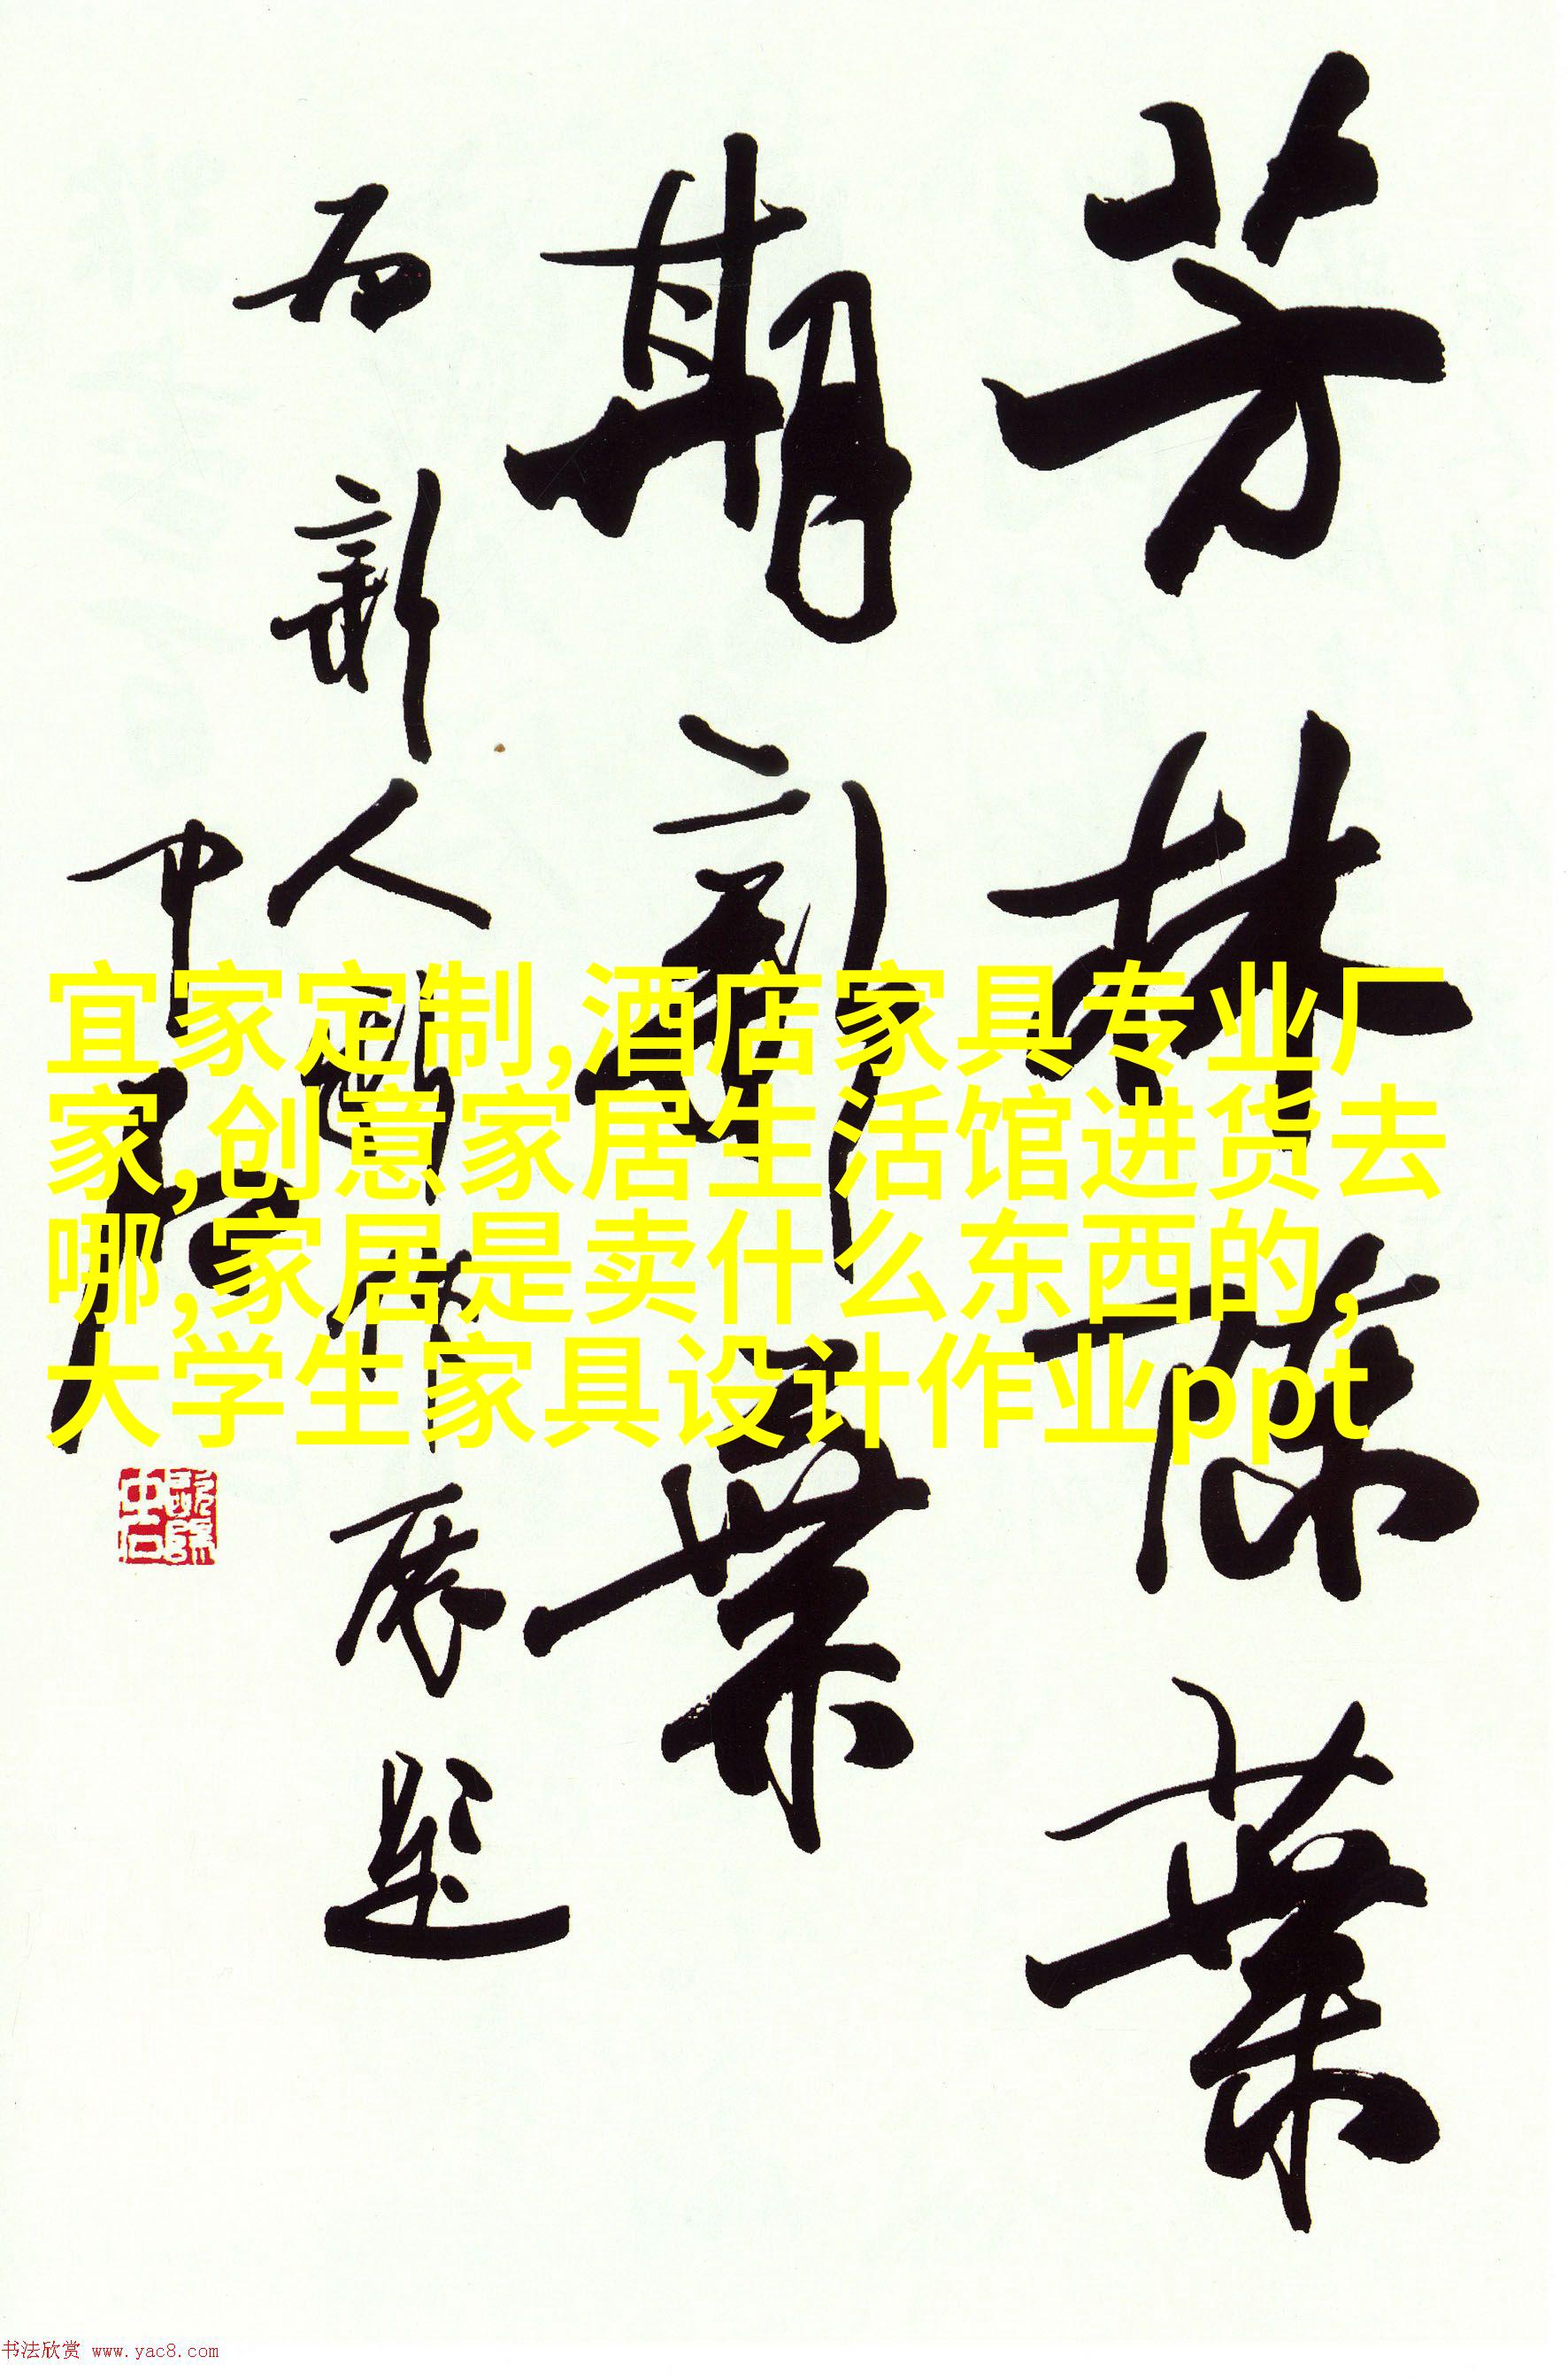 芳林陈葉
期新葉
为新人書作展題
中石
宜家定制,酒店家具专业厂
家,创意家居生活馆进货去
哪,家居是卖什么东西的,
大学生家具设计作业ppt
书法欣赏 www.yac8.com